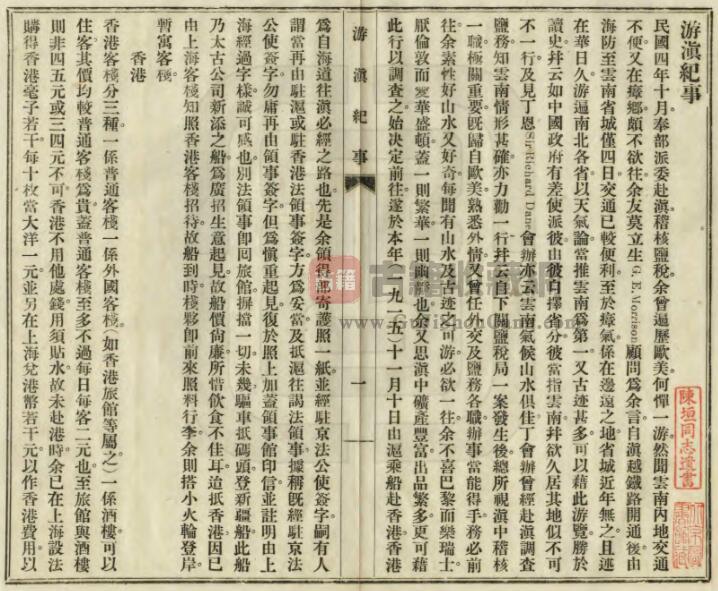 游滇紀事
民國四年十月奉部派委赴滇稽核鹽稅余曾遍歷歐美何憚一游然聞雲南內地交通
不便又在瘴鄉頗不欲往余友莫立生G. E. Morrison顧問爲余言自滇越鐵路開通後由
海防至雲南省城僅四日交通已較便利至於瘴氣係在邊遠之地省城近年無之且逐
在華日久游遍南北各省以天氣論當推雲南爲第一又古蹟甚多可以藉此游覽勝於
讀史幷云如中國政府有差使派彼由彼自擇省分彼當指雲南幷欲久居其地似不可
不一行及見丁恩Sir Richard Dane會辦亦云雲南氣候山水俱佳丁會辦曾經赴滇調查
鹽務知雲南情形甚確亦力勸一行幷云自下關鹽稅局一案發生後總所視滇中稽核
一職極關重要旣歸自歐美熟悉外情又曾任外交及鹽務各職辦事當能得手務必前
往余素性好山水又好奇每聞有山水及古迹之可游必欲一往余不喜巴黎而樂瑞士
厭倫敦而愛華盛頓蓋一則繁華一則幽雅也余又思滇中礦產豐富出品繁多更可藉
此行以調查之始決定前往遂於本年(一九一五)十一月十日由滬乘船赴香港香港
游滇紀事
一
爲自海道往滇必經之路也先是余領得部寄護照一紙並經駐京法公使簽字嗣有人
謂當再由駐滬或駐香港法領事簽字方爲妥當及抵滬往謁法領事據稱旣經駐京法
公使簽字勿庸再由領事簽字但爲愼重起見復於照上加蓋領事館印信並註明由上
海經過字樣誠可感也別法領事卽囘旅館摒擋一切未幾驅車抵碼頭登新疆船此船
乃太古公司新添之船爲廣招生意起見故船價尙廉所惜飮食不佳耳迨抵香港因已
由上海客棧知照香港客棧招待故船到時棧夥卽前來照料行李余則搭小火輪登岸
暫寓客棧
香港
香港客棧分三種一係普通客棧一係外國客棧(如香港旅館等屬之)一係酒樓可以
住客其價均較普通客棧爲貴蓋普通客棧至多不過每日每客二元也至旅館與酒樓
則非四五元或三四元不可香港不用他處錢用須貼水故未赴港時余已在上海設法
購得香港毫子若干每十枚當大洋一元並另在上海兌港幣若干元以作香港費用以
陳垣同志遺書